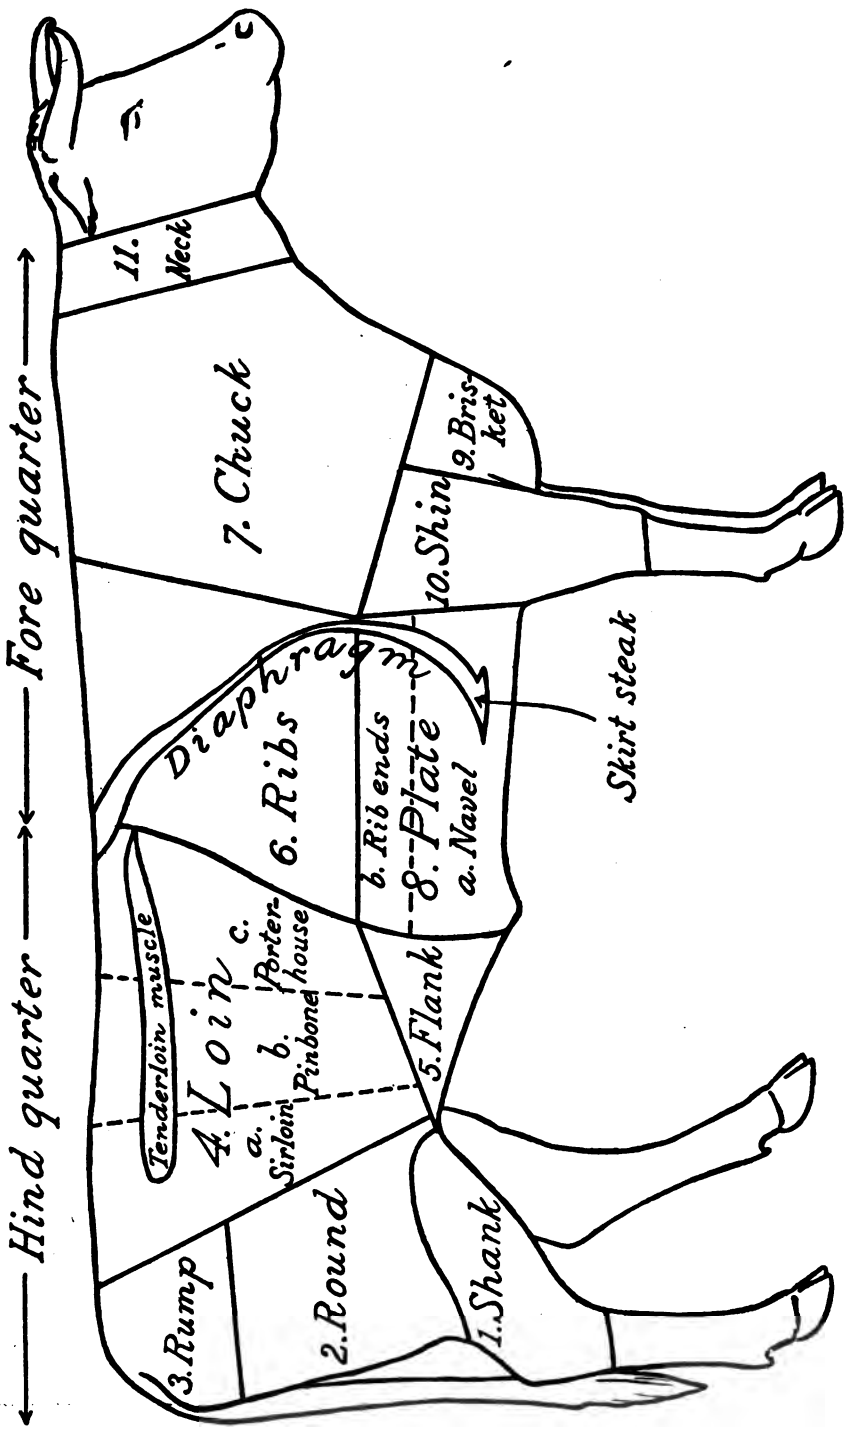 Hind quarter
Fore quarter
3. Rump
2. Round
1. Shank
Tenderloin muscle
4. Loin
a.
Sirloin
b.
Pinbone
c.
Porter-
house
5. Flank
Diaphragm
6. Ribs
b. Rib ends
8. Plate
a. Navel
Skirt steak
7. Chuck
10. Shin
9. Bris-
ket
11.
Neck